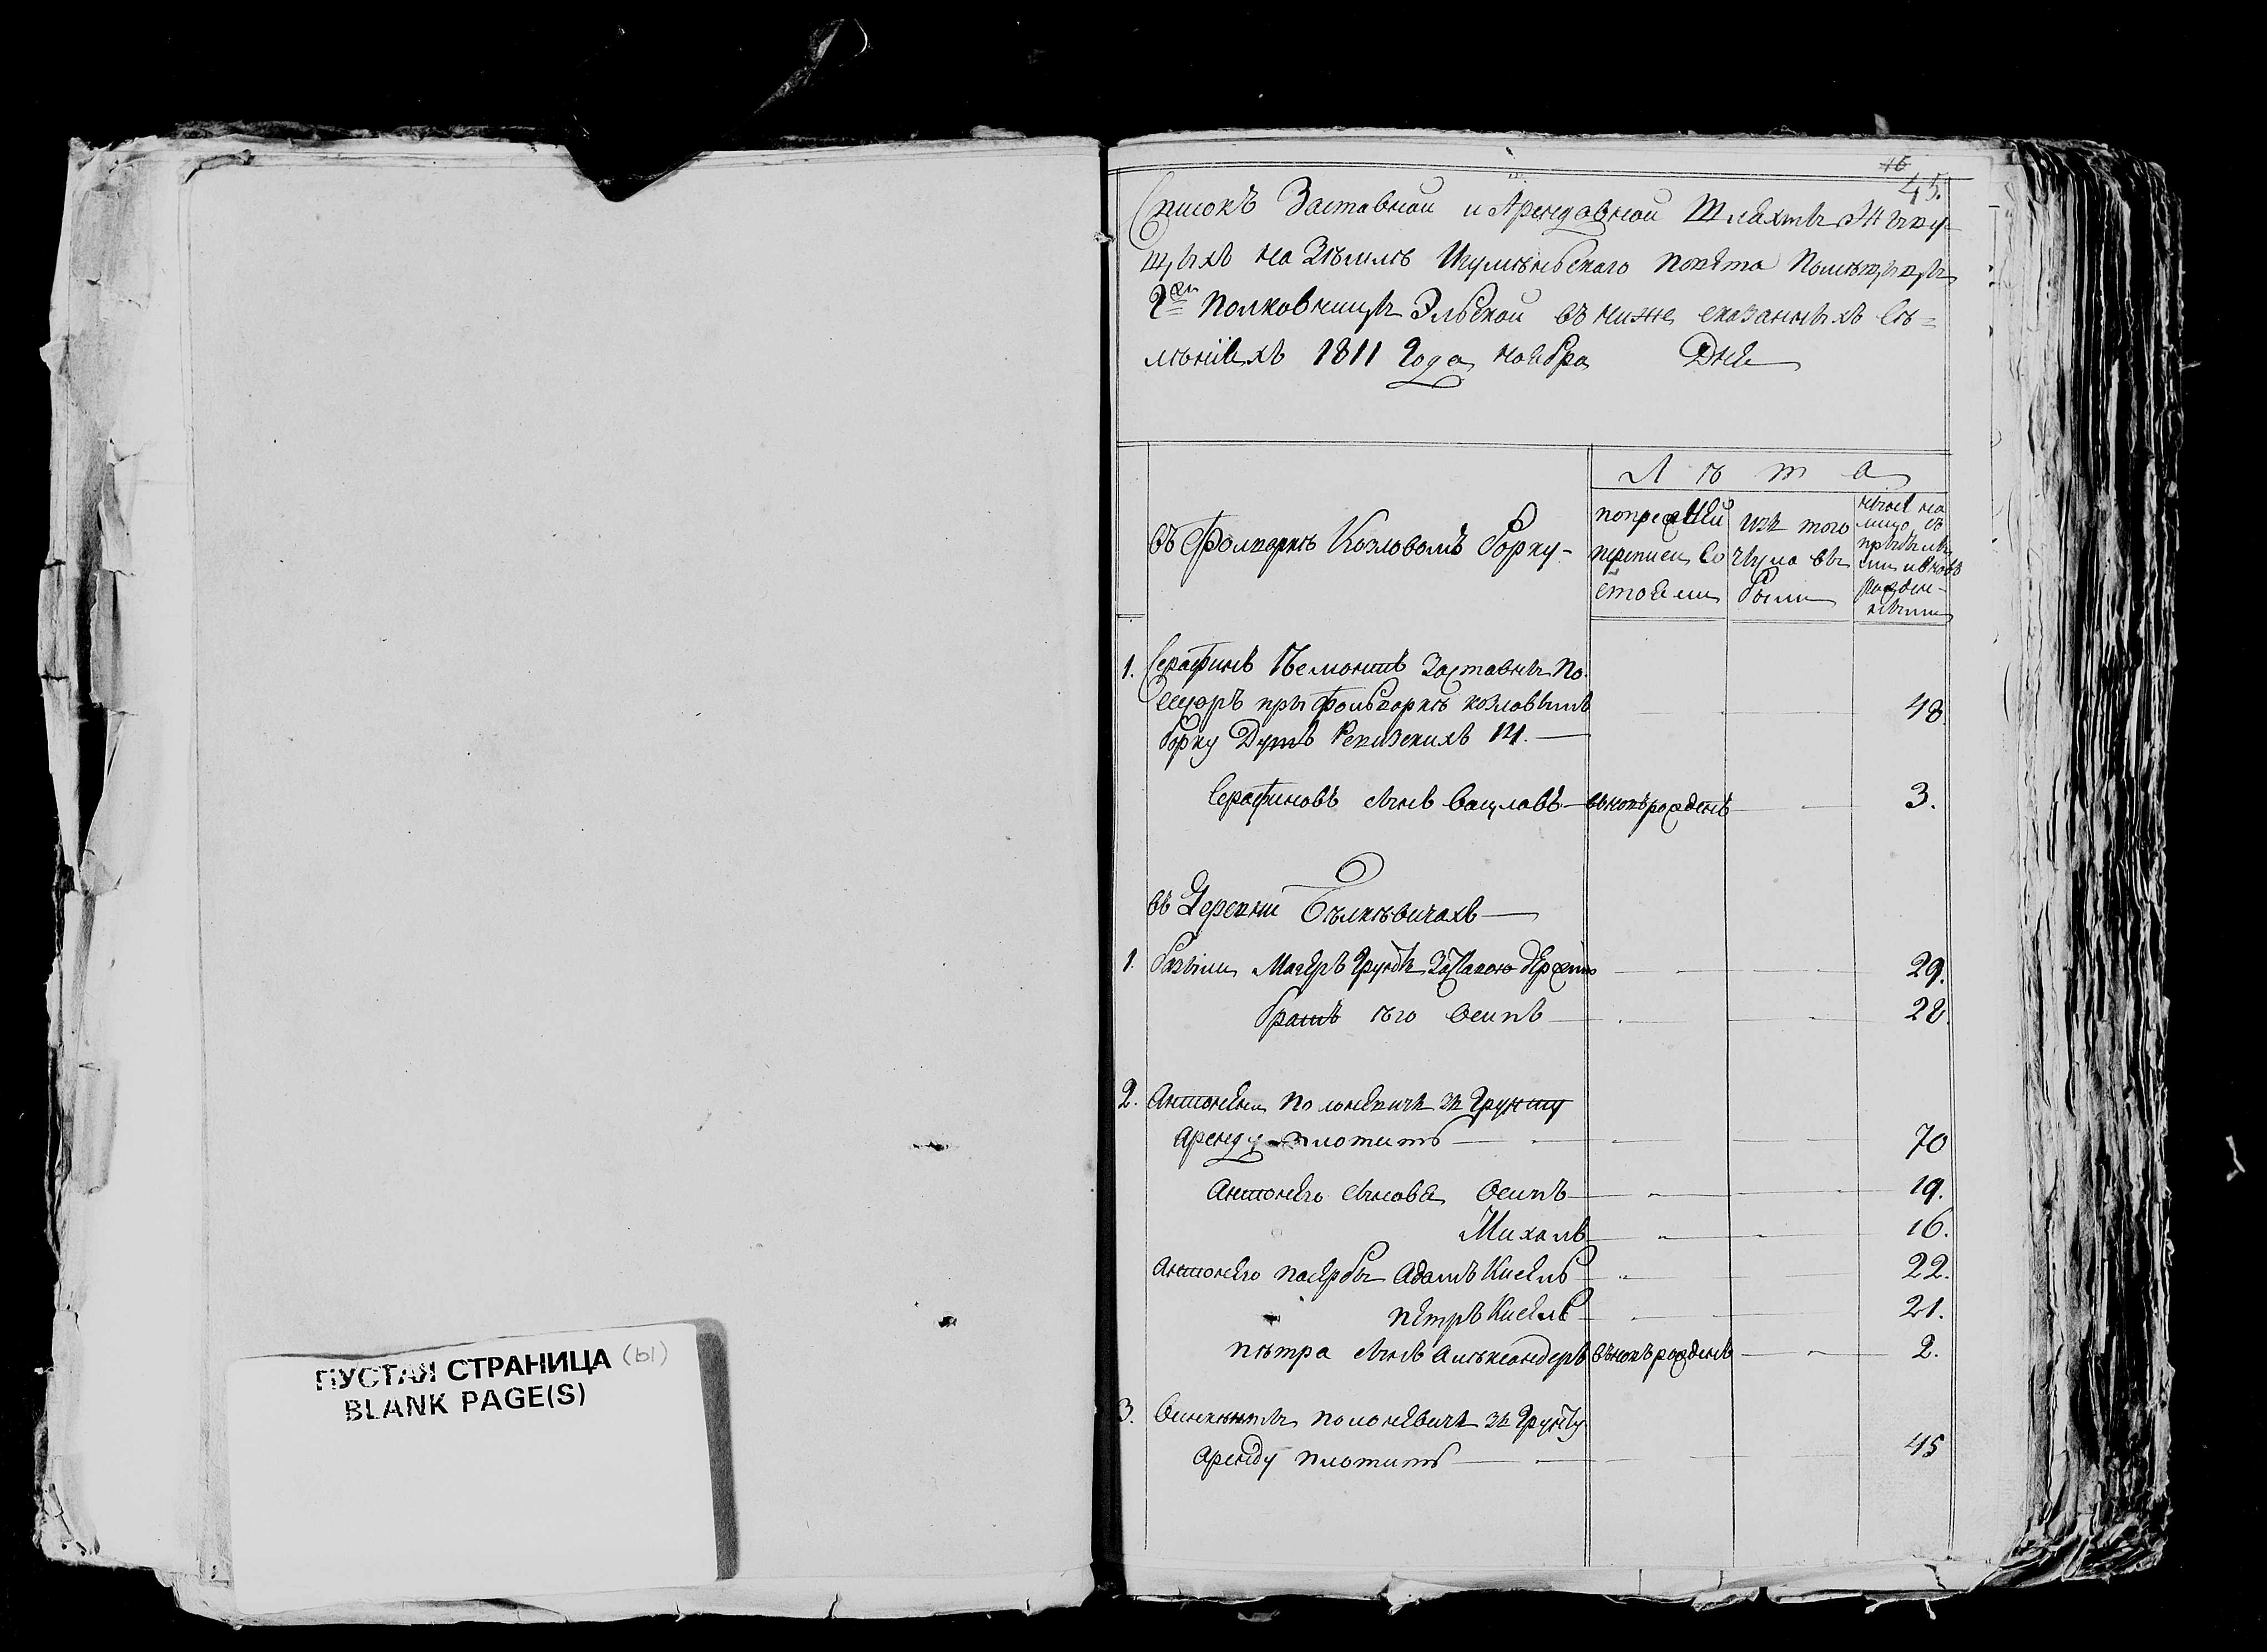 ПУСТАЯ СТРАНИЦА (ы)
BLANK PAGE(S)
16
45.
Списокъ Заставной и Арендовной Шляхты Жыву-
щыхъ на Зѣмлѣ Игумѣньскаго Повята Помѣщыцы
Гжи Полковницы Эльской въ ниже сказанныхъ Сѣ=
лѣніяхъ 1811 Года ноября Дня
Лѣта
въ Фолваркѣ Козловомъ Борку-
попрежней
перепися Со
стояли
изъ того
числа вы
были
ныне на
лицо съ
прыбылы
ми и вновь
рожден-
ными
1. Серафинъ заставны По
сесоръ пры фольваркѣ козловымъ
Борку Душъ Ревизскихъ 14. 48
Серафиновъ сынъ Вацлавъ вновъ рожденъ 3.
въ Деревни Бѣлкѣвичахъ
1. Мацеръ Грунтъ Заставою держитъ 29.
Братъ ѣго Осипъ 28.
2. Антонѣй Полонѣвичъ зъ Грунту
Аренду плотитъ 70
Антонѣго сыновѣ Осипъ 19.
Михалъ 16.
Антонѣго пасербы Адамъ Кисѣль 22.
Пѣтръ Кисѣль 21.
Пѣтра сынъ Алѣксандеръ вновъ рожденъ 2.
3. Винцѣнты Полонѣвичъ зъ Грунту
Аренду плотитъ 45